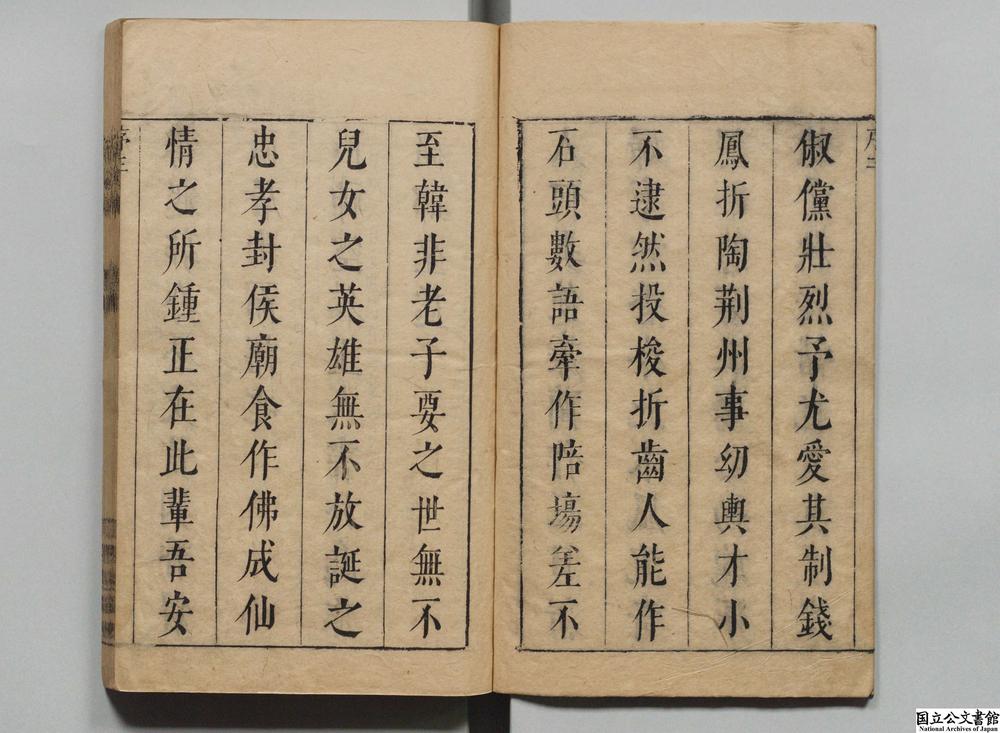 俶儻壯烈予尤愛其制錢
鳳折陶荆州事幼輿才小
不逮然投梭折齒人能作
石頭數語牽作陪塲差不
至韓非老子要之世無不
兒女之英雄無不放誕之
忠孝封侯廟食作佛成仙
情之所鍾正在此輩吾安
序三
国立公文書館
National Archives of Japan